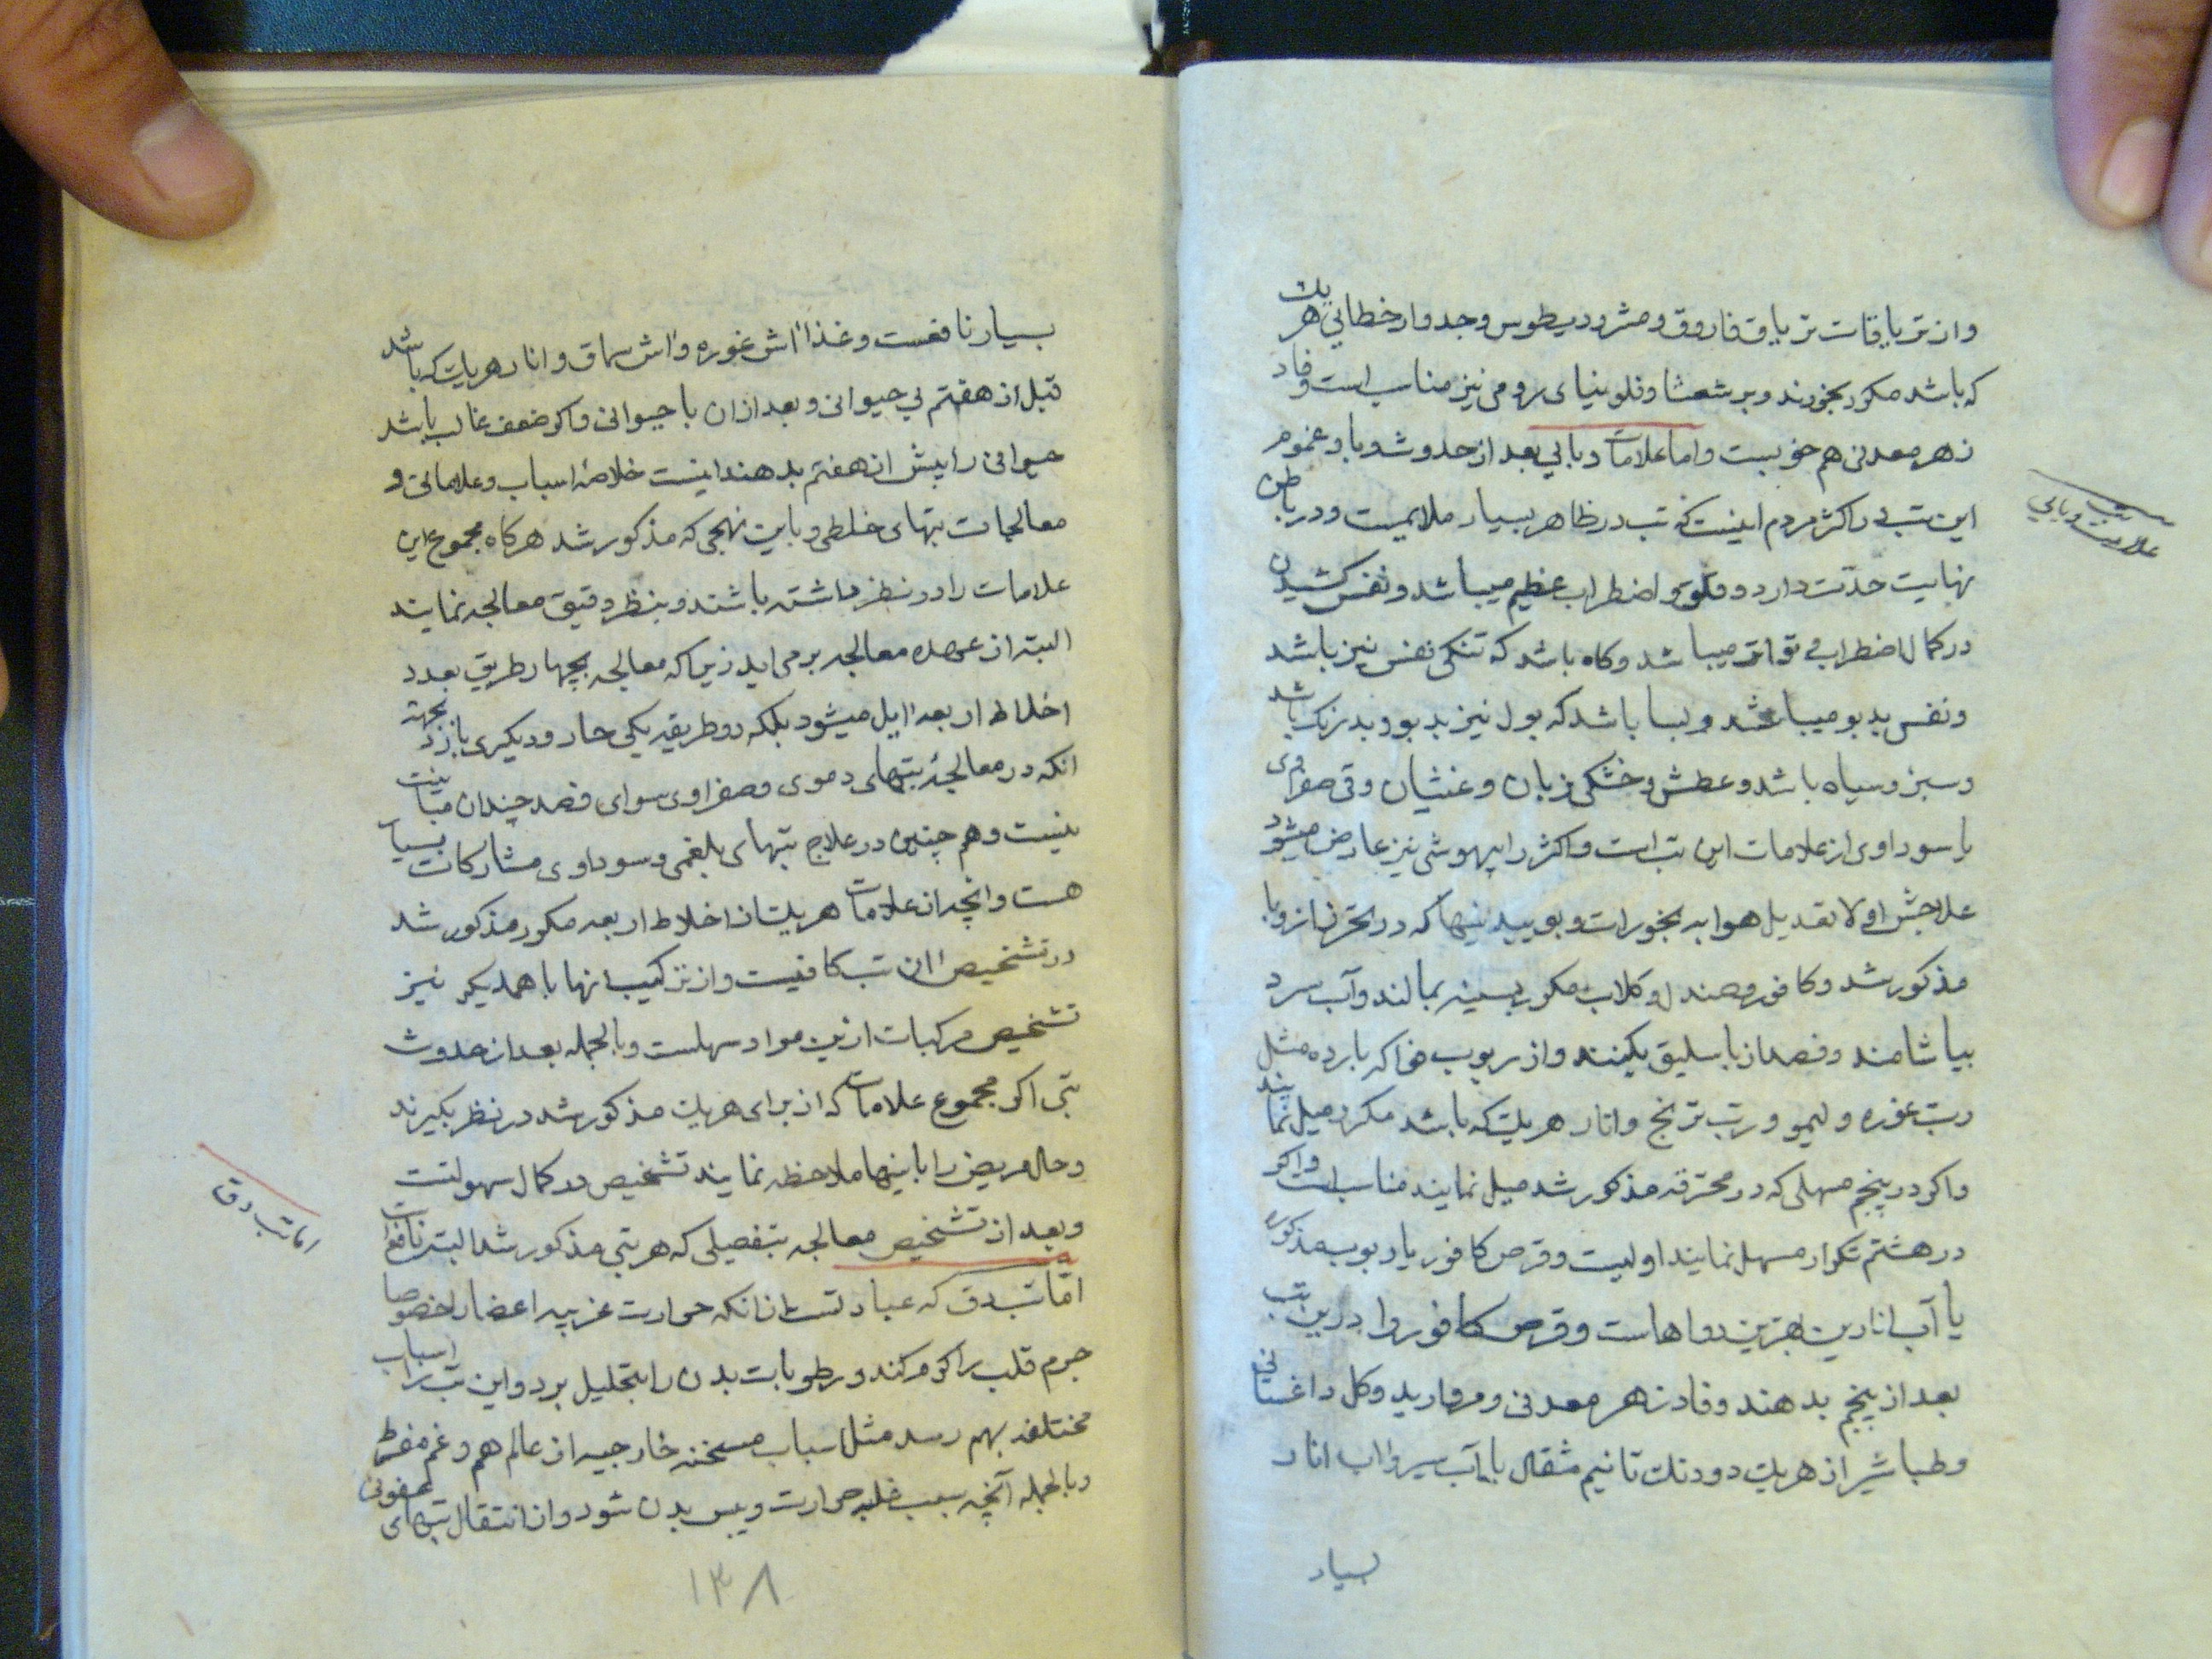 وان تریاقات تریاق فاروق و مثرودیطوس و جدوار خطایی هریک
که باشد مکرر بخورند و برشعثا و فلونیای رومی نیز مناسب است و فاد
زهر معدنی هم خوبست و اما علامات وبایی بعد از حدوث وبا و عموم
این تب در اکثر مردم اینست که تب در ظاهر بسیار ملایمست و در باطن
نهایت حدّت دارد و قلق و اضطراب عظیم میباشد و نفس کشیدن
در کمال اضطراب و تواتر میباشد و کاه باشد که تنکی نفس نیز باشد
و نفس بدبو میباشد و بسا باشد که بول نیز بدبو و بدرنک باشد
و سبز و سیاه باشد و عطش و خشکی زبان و غثیان و قی صفراوی
یا سوداوی از علامات این تب است و اکثر را بیهوشی نیز عارض میشود
علاجش اولا تعدیل هوا به بخورات و بوییدنیها که در تحرز از وبا
مذکور شد و کافور و صندل و کلاب مکرر بسینه بمالند و آب سرد
بیاشامند و فصد از باسلیق بکنند و از ربوب فواکه بارده مثل
رب غوره و لیمو و رب ترنج و انار هریک که باشد مکرر میل نمایند
و اکر در پنجم مسهلی که در محترقه مذکور شد میل نمایند مناسب است و اکر
در هشتم تکرار مسهل نمایند اولیست و قرص کافور با ربوب مذکوره
یا آب انارین بهترین دواهاست و قرص کافور را درین تب
بعد از پنجم بدهند و فادزهر معدنی و مروارید و کل داغستانی
و طباشیر از هریک دو دنک تا نیم مثقال با آب سیر و آب انار
بسیار
علامت تب وبایی
بسیار نافعست و غذا اش غوره و اش سماق و انار هریک که باشد
قبل از هفتم بی حیوانی و بعد از ان با حیوانی و اکر ضعف غالب باشد
حیوانی را پیش از هفتم بدهند اینست خلاصهٔ اسباب و علامات و
معالجات تبهای خلطی و باین نهجی که مذکور شد هرکاه مجموع این
علامات را در نظر داشته باشند و بنظر دقیق معالجه نمایند
البته از عهده معالجه برمی اید زیرا که معالجه بچهار طریق بعدد
اخلاط اربعه زایل میشود بلکه دو طریقه یکی حار و دیکری بارد بجهته
انکه در معالجهٔ تبهای دموی و صفراوی سوای فصد چندان مباینت
نیست و هم چنین در علاج تبهای بلغمی و سوداوی مشارکات بسیار
هست و انچه از علامات هریک از اخلاط اربعه مکرر مذکور شد
در تشخیص ان تب کافیست و از ترکیب انها با همدیکر نیز
تشخیص مرکبات ازین مواد سهلست و بالجمله بعد از حدوث
تبی اکر مجموع علامات که از برای هریک مذکور شد در نظر بکیرند
و حال مریض را باینها ملاحظه نمایند تشخیص در کمال سهولتست
و بعد از تشخیص معالجه بتفصیلی که هر تبی مذکور شد البته نافع است
امّا تب دق که عبارتست از انکه حرارت غریبه اعضا را خصوصا
جرم قلب را کرم کند و رطوبات بدن را بتحلیل برد و این تب را اسباب
مختلفه بهم رسد مثل اسباب مسخنه خارجیه از عالم هم و غم مفرط
و بالجمله آنچه سبب غلبه حرارت و یبس بدن شود و از انتقال تبهای عفونی
اما تب دق
۱۳۸